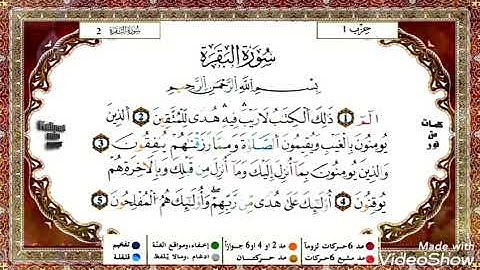 حزب 1
سُورَةُ البَقَرَة 2
سُورَةُ البَقَرَةِ
بِسْمِ اللَّهِ الرَّحْمَٰنِ الرَّحِيمِ
الٓمٓ ① ذَٰلِكَ الْكِتَٰبُ لَا رَيْبَ فِيهِ هُدًى لِّلْمُتَّقِينَ ② الَّذِينَ
يُومِنُونَ بِالْغَيْبِ وَيُقِيمُونَ الصَّلَوٰةَ وَمِمَّا رَزَقْنَٰهُمْ يُنفِقُونَ ③
وَالَّذِينَ يُومِنُونَ بِمَا أُنزِلَ إِلَيْكَ وَمَا أُنزِلَ مِن قَبْلِكَ وَبِالْآخِرَةِ هُمْ
يُوقِنُونَ ④ أُوْلَٰٓئِكَ عَلَىٰ هُدًى مِّن رَّبِّهِمْ وَأُوْلَٰٓئِكَ هُمُ الْمُفْلِحُونَ ⑤
كلمات
من
نور
مد 6 حركات لزوماً
مد 2 أو 4 أو 6 جوازاً
إخفاء، ومواقع الغنّة
تفخيم
مد مشبع 6 حركات
مد حركتان
إدغام، وما لا يُلفظ
قلقلة
Made with
VideoShow